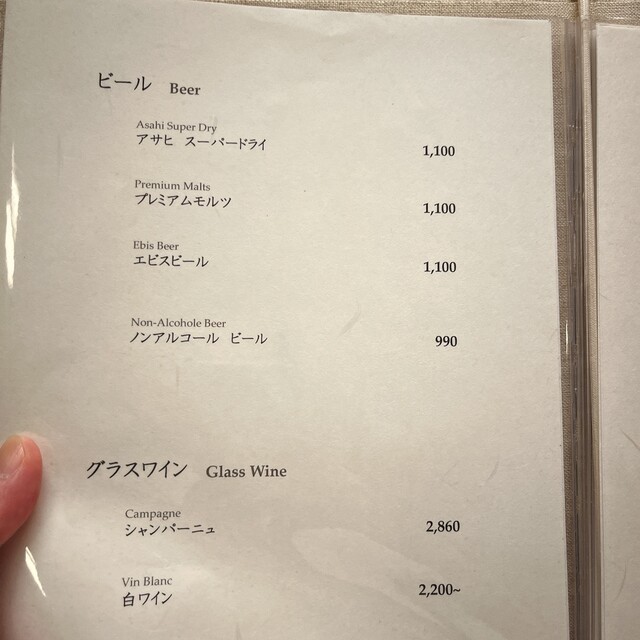 ビール Beer
Asahi Super Dry
アサヒ スーパードライ 1,100
Premium Malts
プレミアムモルツ 1,100
Ebis Beer
エビスビール 1,100
Non-Alcohole Beer
ノンアルコール ビール 990
グラスワイン Glass Wine
Campagne
シャンパーニュ 2,860
Vin Blanc
白ワイン 2,200~